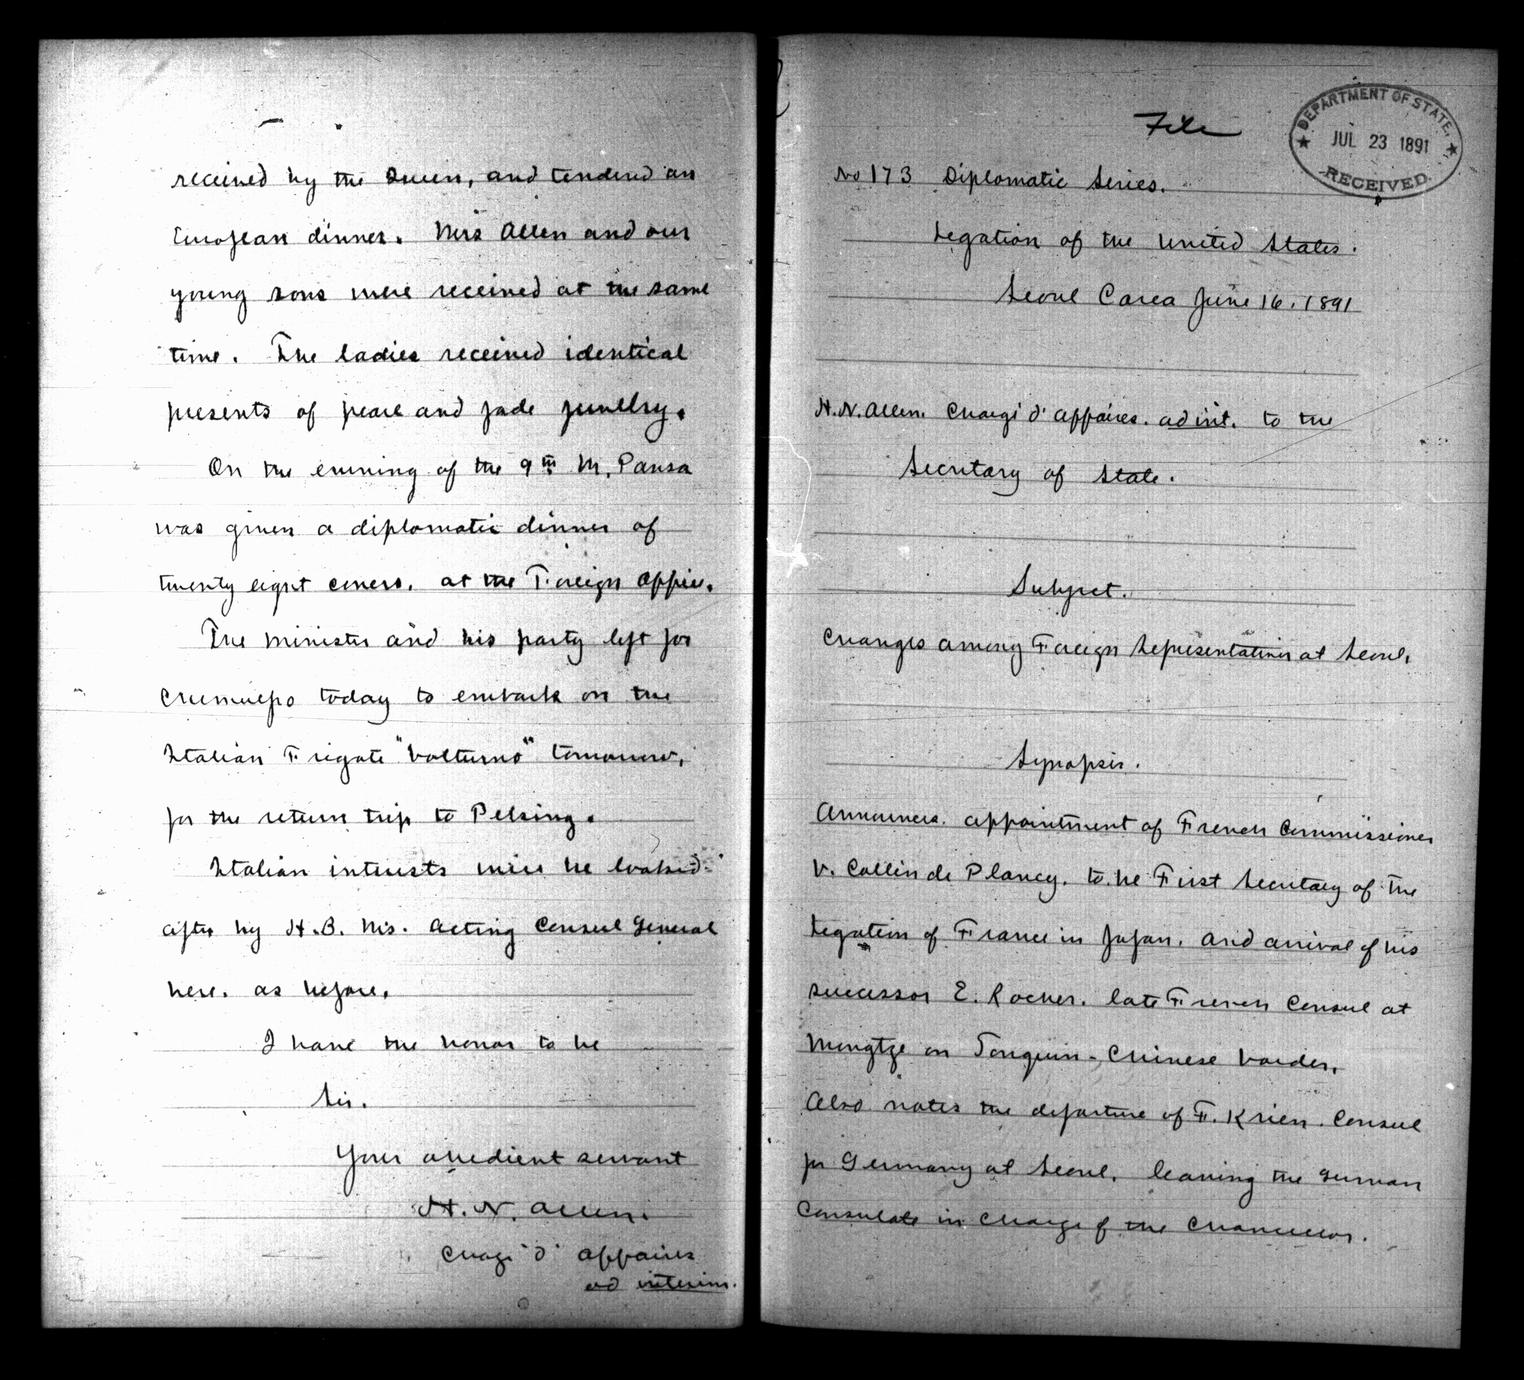 received by the Queen, and tendered an
European dinner. Mrs Allen and our
young sons were received at the same
time. The ladies received identical
presents of pearl and jade jewelry.
On the evening of the 9th M. Pansa
was given a diplomatic dinner of
twenty eight covers. at the Foreign Office.
The minister and his party left for
Chemulpo today to embark on the
Italian Frigate "Volturno" tomorrow,
for the return trip to Peking.
Italian interests will be looked
after by H.B. Ms. Acting Consul General
here. as before.
I have the honor to be
Sir.
Your obedient servant
H. N. Allen.
Chargé d' Affaires
ad interim.
File
DEPARTMENT OF STATE,
JUL 23 1891
RECEIVED.
No 173 Diplomatic Series.
Legation of the United States.
Seoul Corea June 16. 1891
H. N. Allen. Chargé d' Affaires. ad int. to the
Secretary of State.
Subject.
Changes among Foreign Representatives at Seoul.
Synopsis.
Announces. appointment of French Commissioner
V. Collin de Plancy. to be First Secretary of the
Legation of France in Japan. and arrival of his
successor E. Rocher. late French Consul at
Mengtze on Tonquin-Chinese border.
Also notes the departure of F. Krien. Consul
for Germany at Seoul. leaving the German
Consulate in charge of the Chancellor.